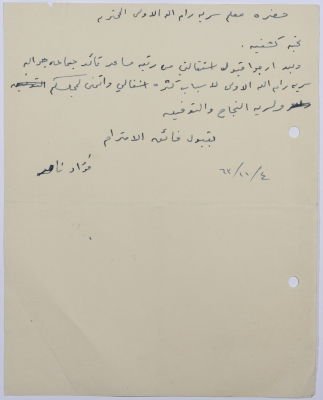 حضرة معلم سرية رام الله الاولى المحترم
تحية كشفية .
وبعد ارجوا قبول استقالتي من رتبة مساعد قائد جماعة جوالة
سرية رام الله الاولى لاسباب كثرة اشغالي واتمنى لمجلسكم
ولسرية النجاح والتوفيق
بقبول فائق الاحترام
فؤاد ناصر
٦٢/١١/٤